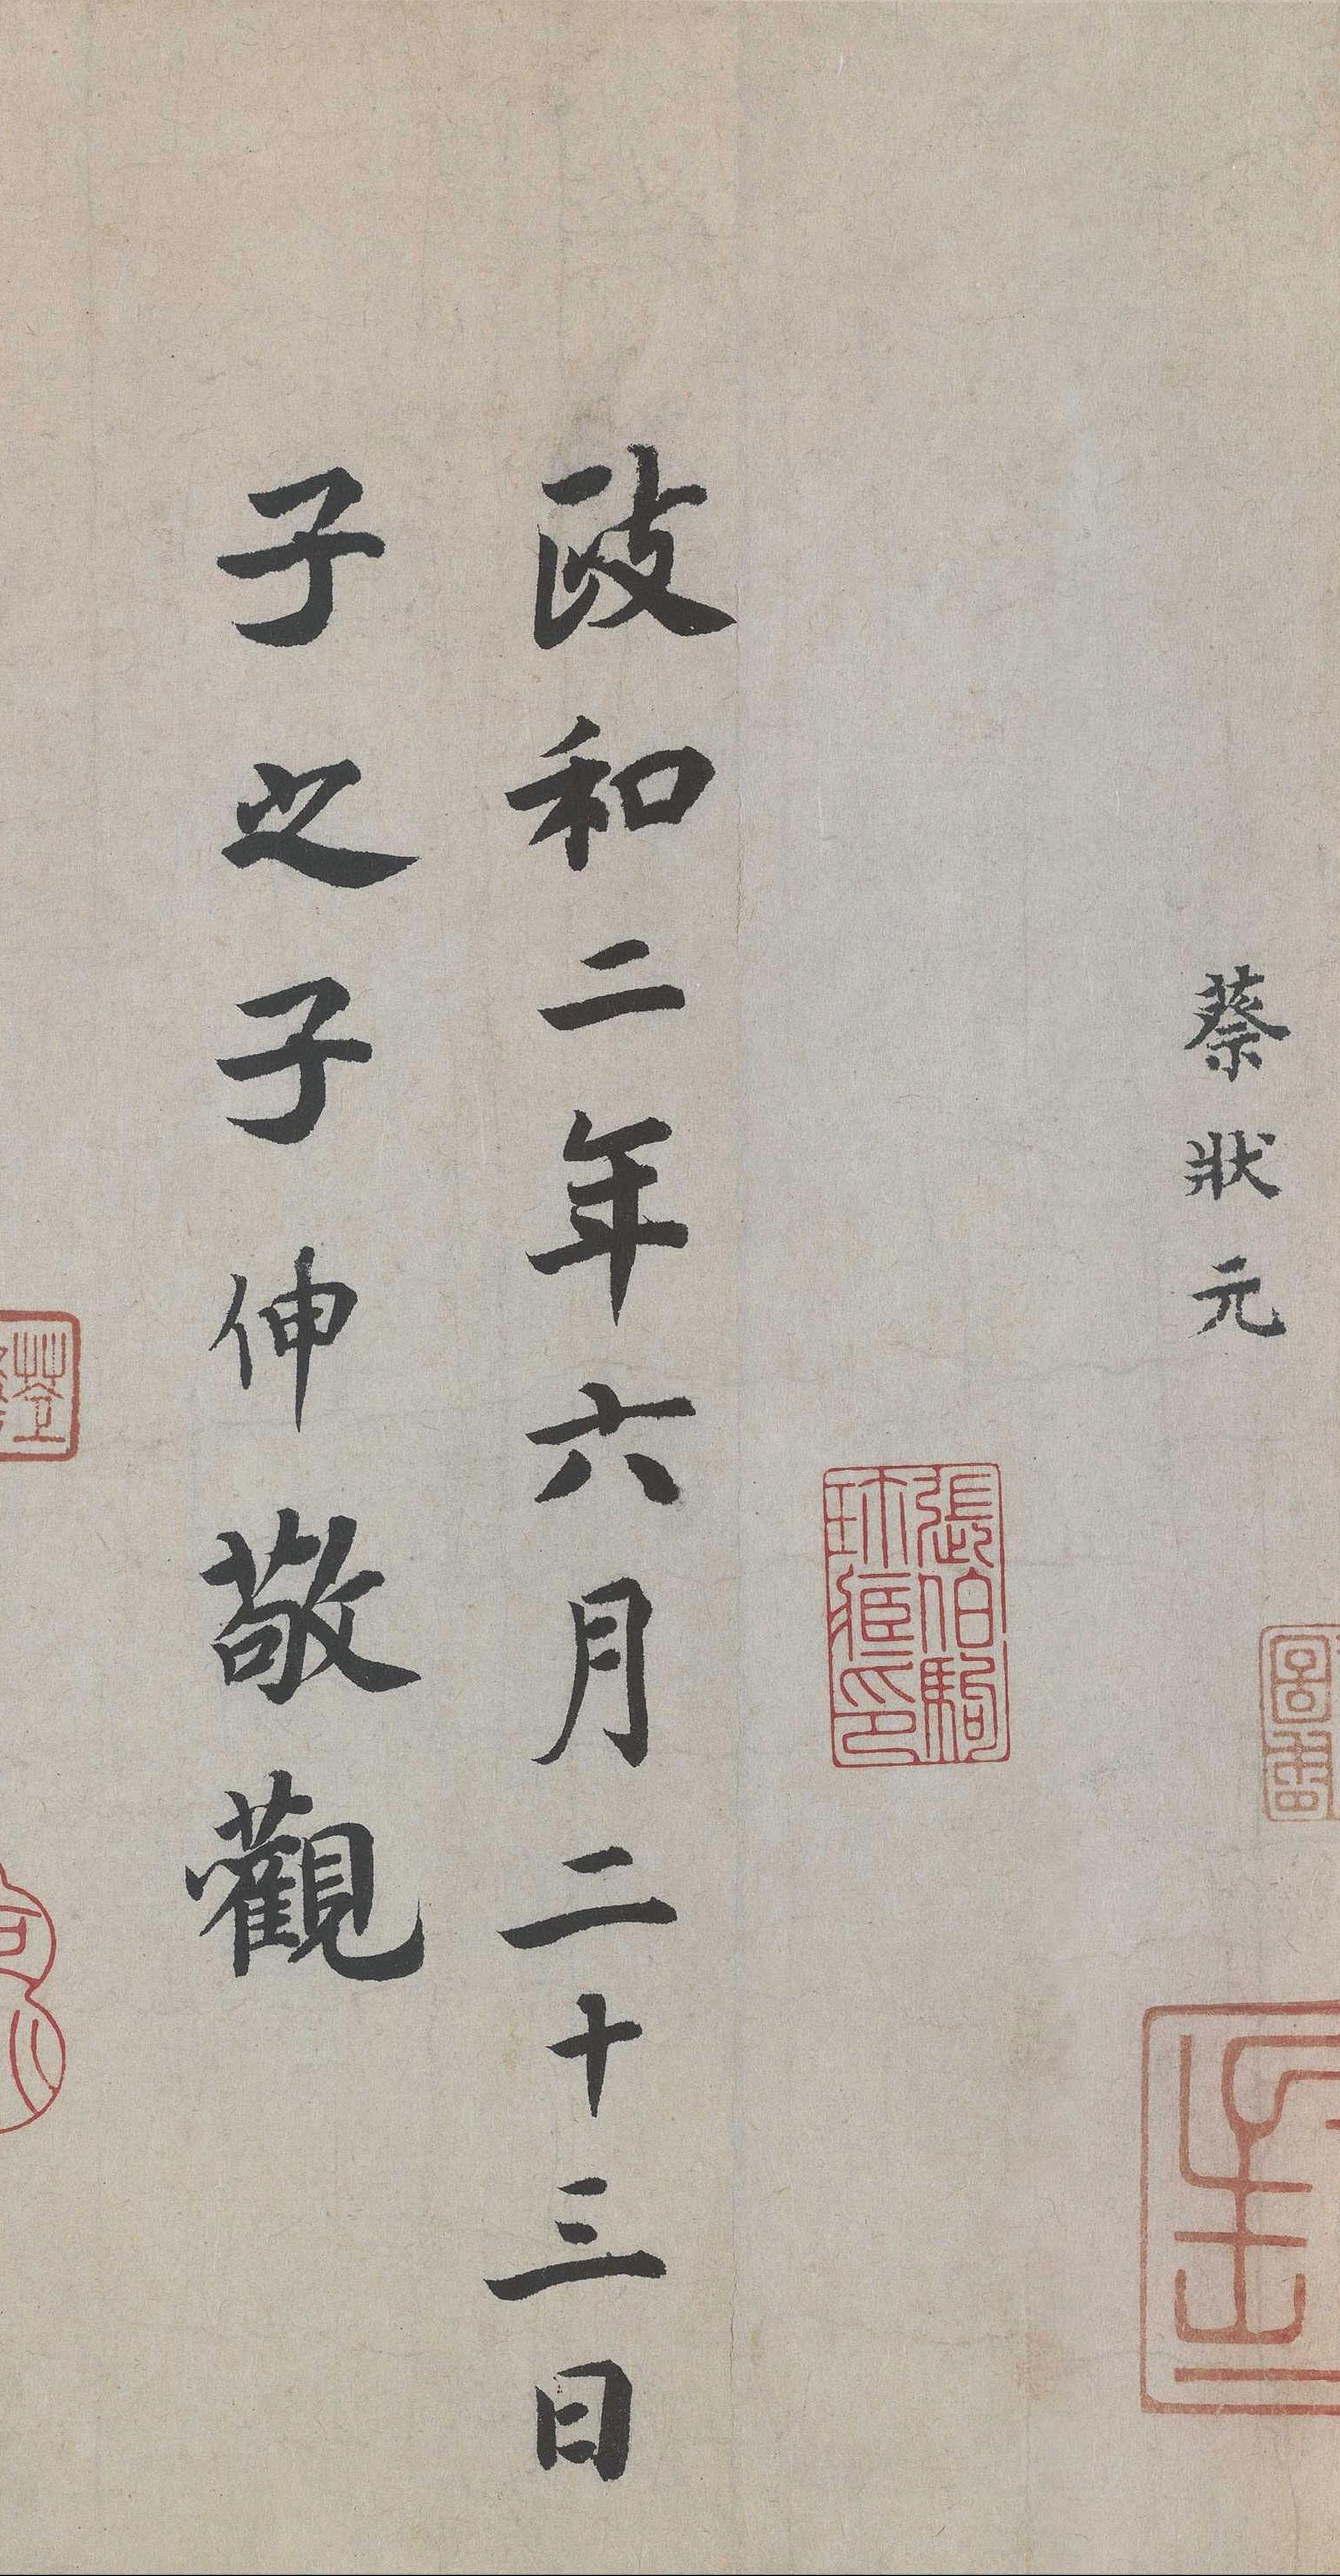 蔡狀元
張伯駒
珎藏印
政和二年六月二十三日
子之子伸敬觀